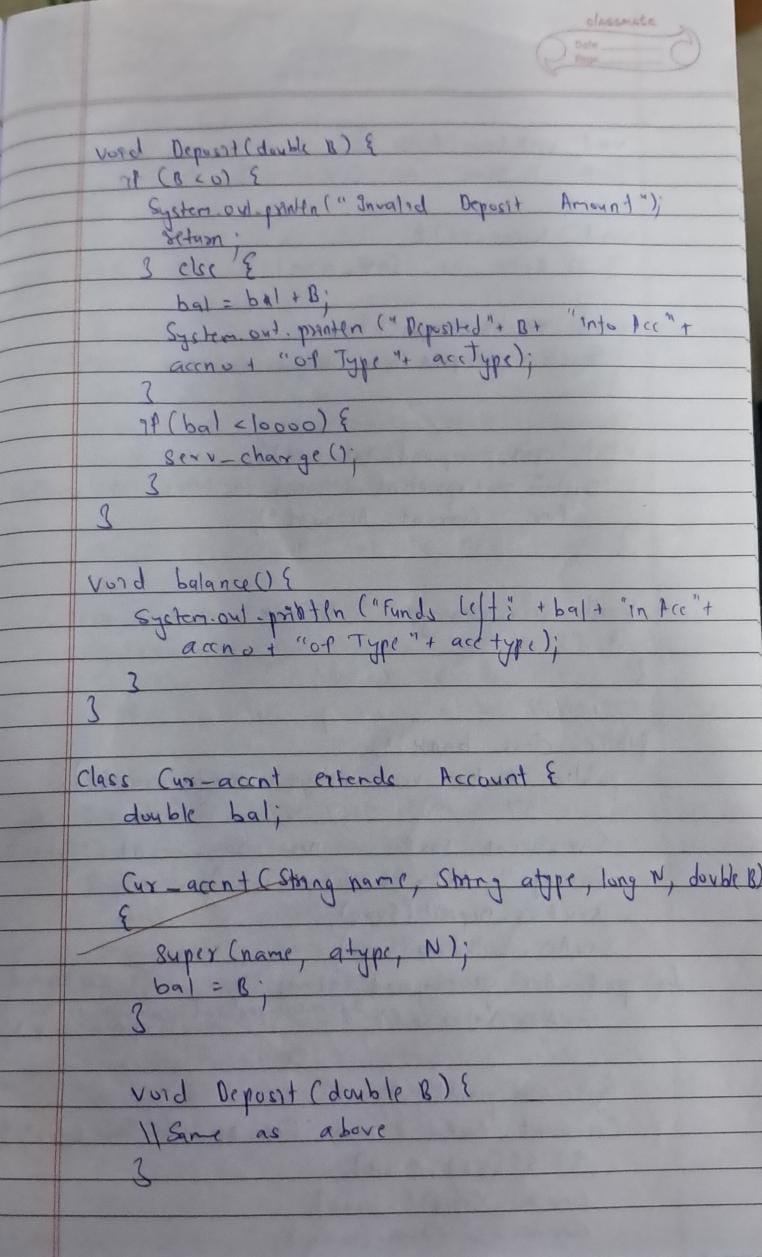 classmate
Date
Page
void Deposit(double B) {
if (B<0) {
System.out.println("Invalid Deposit Amount");
return;
} else {
bal = bal + B;
System.out.println ("Deposited"+ B+ "into Acc"+
accno + "of Type"+ accType);
}
if (bal <10000) {
serv_charge();
}
}
void balance() {
System.out.println ("Funds left:" + bal + "in Acc"+
accno + "of Type"+ acctype);
}
}
Class Cur-accnt extends Account {
double bal;
Cur_accnt (String name, String atype, long N, double B)
{
super (name, atype, N);
bal = B;
}
void Deposit (double B) {
// Same as above
}